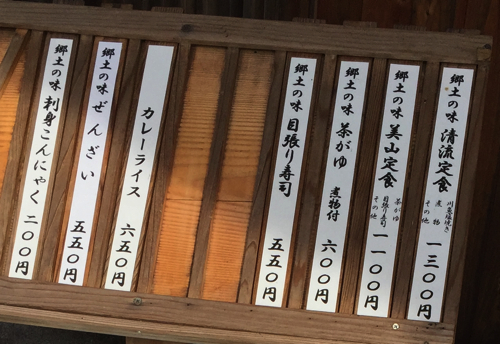 郷土の味 清流定食 川魚塩焼き 煮物 その他 一三〇〇円
郷土の味 美山定食 茶がゆ 目張り寿司 その他 一一〇〇円
郷土の味 茶がゆ 煮物付 六〇〇円
郷土の味 目張り寿司 五五〇円
カレーライス 六五〇円
郷土の味 ぜんざい 五五〇円
郷土の味 刺身こんにゃく 二〇〇円